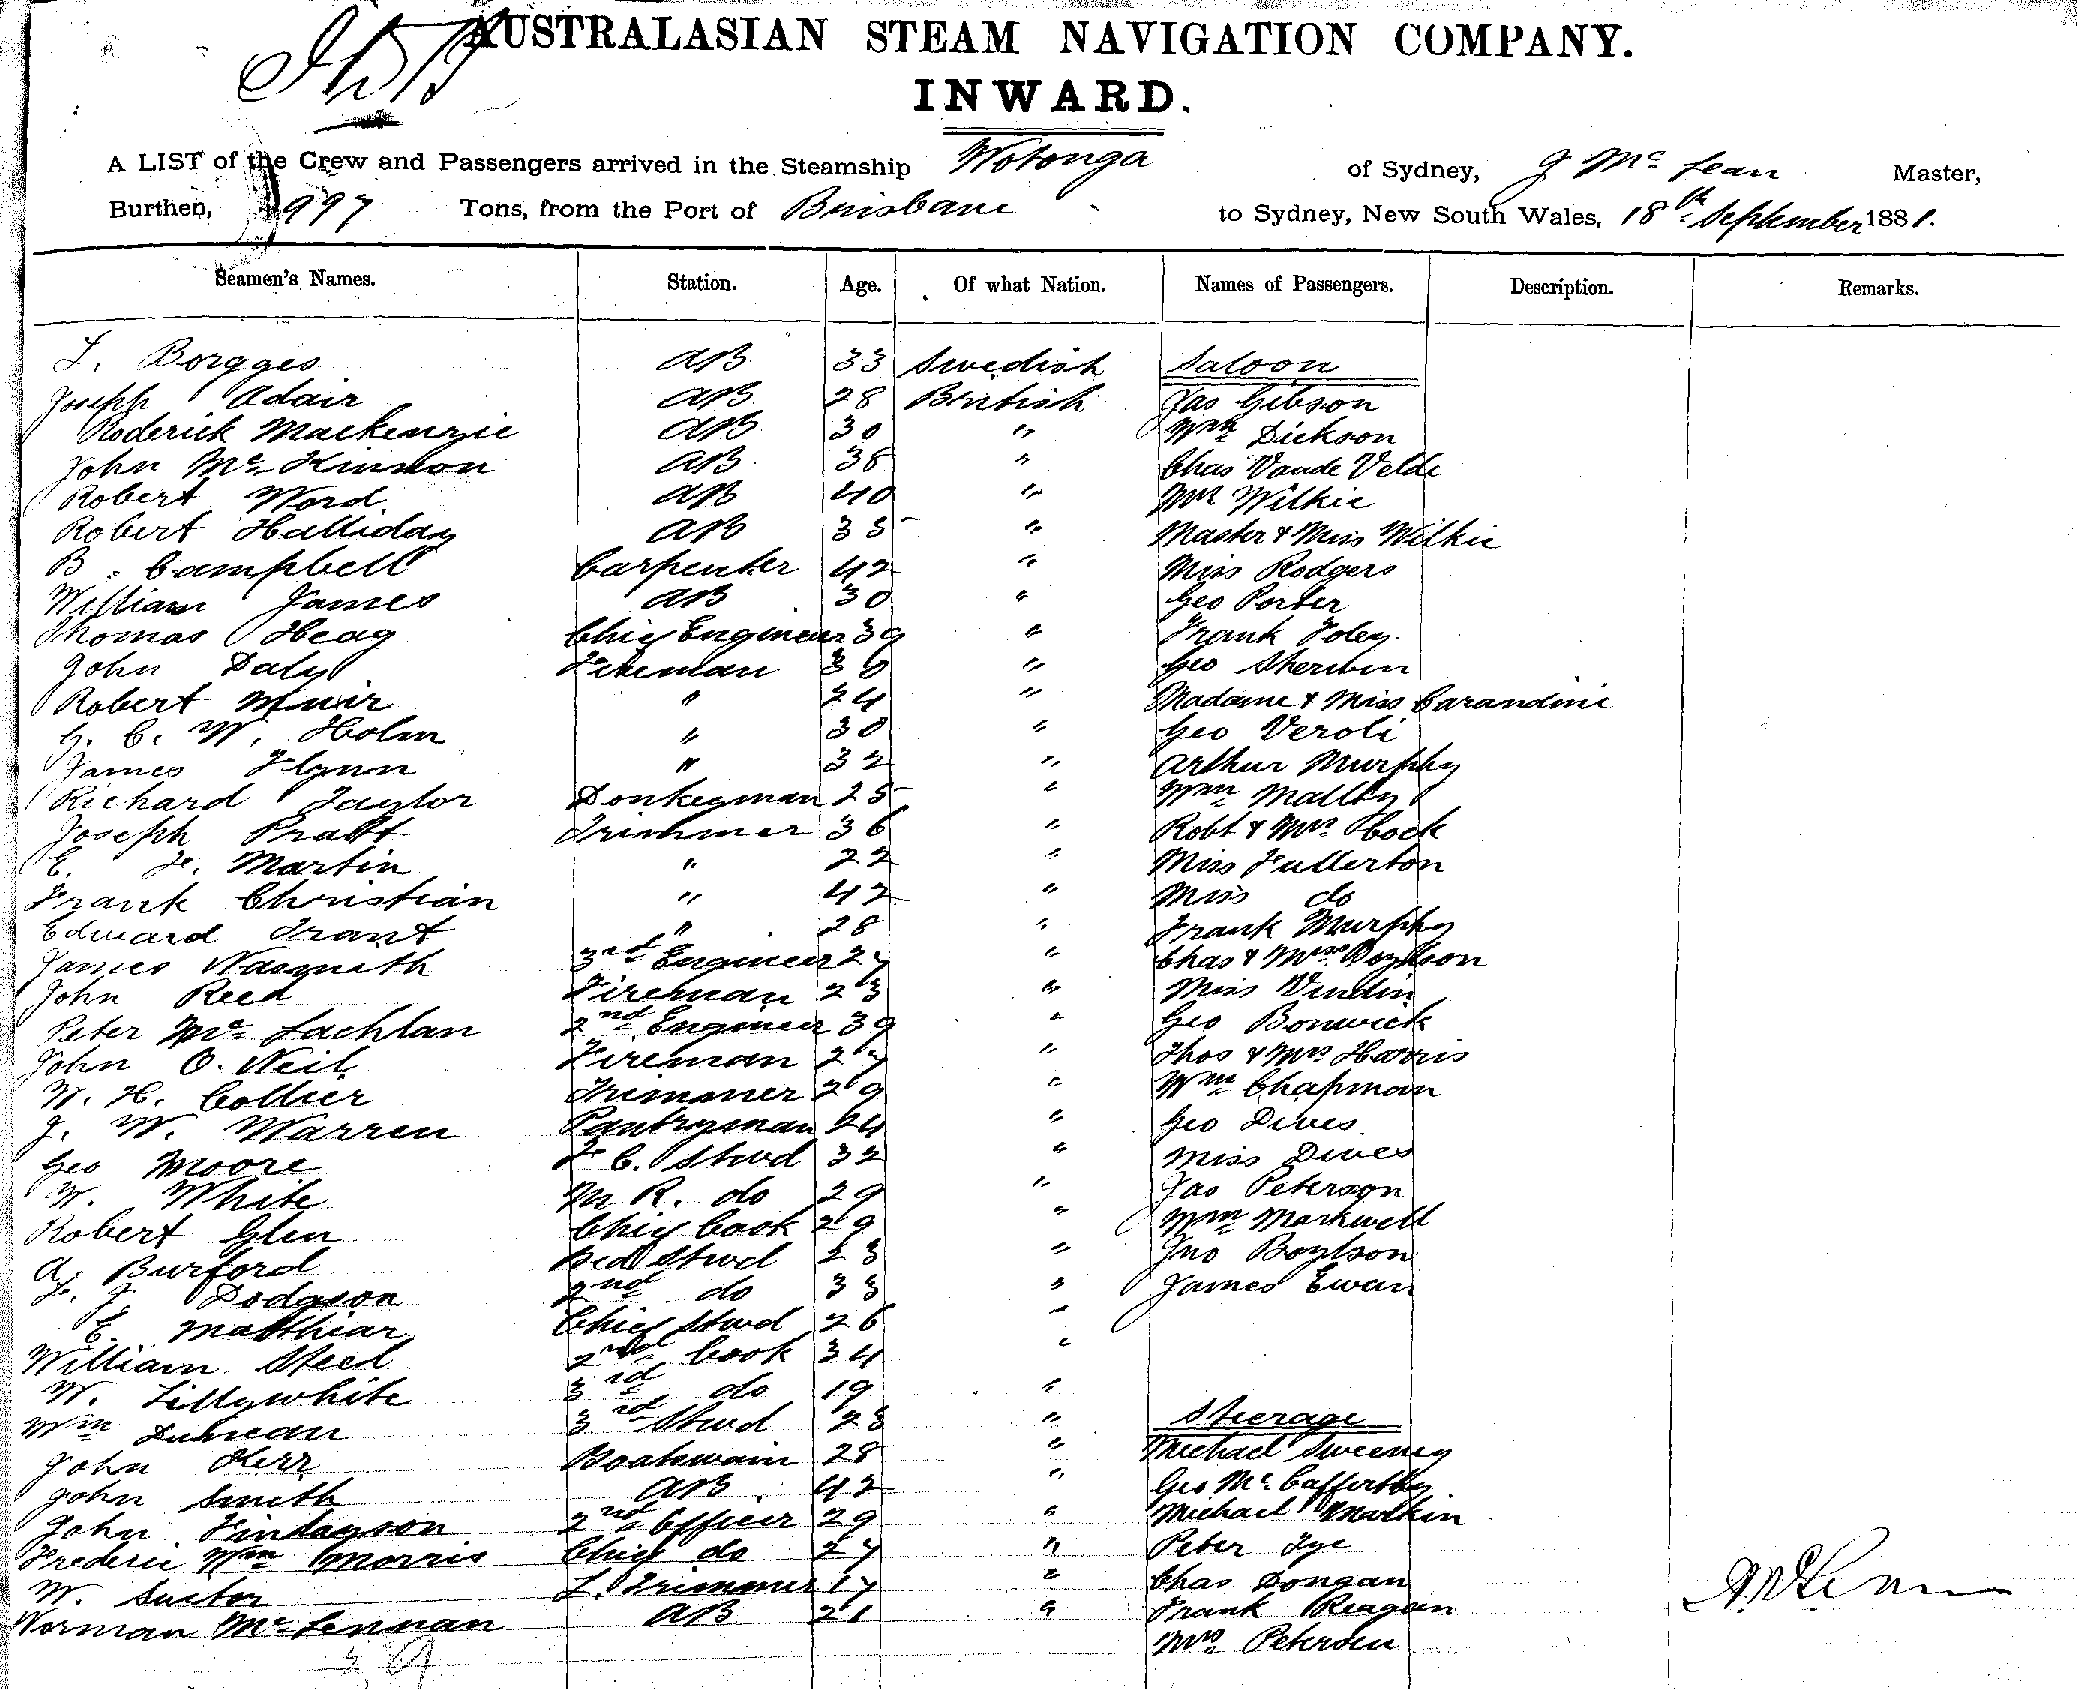 AUSTRALASIAN STEAM NAVIGATION COMPANY.
INWARD.
A LIST of the Crew and Passengers arrived in the Steamship Wotonga of Sydney, J McLean Master,
Burthen, 997 Tons, from the Port of Brisbane to Sydney, New South Wales, 18th September 1881.
Seamen's Names. Station. Age. Of what Nation. Names of Passengers. Description. Remarks.
L. Borgges AB 33 Swedish Saloon
Joseph Adair AB 28 British Jas Gibson
Roderick Mackenzie AB 30 " Wm Dickson
John McKinnon AB 38 " Chas Vande Velde
Robert Word AB 40 " Mrs Wilkie
Robert Halliday AB 35 " Master & Miss Wilkie
B. Campbell Carpenter 42 " Miss Rodgers
William James AB 30 " Geo Porter
Thomas Heag Chief Engineer 39 " Frank Foley
John Daly Fireman 30 " Geo Sherwin
Robert Muir " 24 " Madame & Miss Carandini
G. C. W. Holm " 30 " Geo Veroli
James Flynn " 32 " Arthur Murphy
Richard Taylor Donkeyman 25 " Wm Malley
Joseph Pratt Trimmer 36 " Robt & Mrs Cock
E. F. Martin " 22 " Miss Fullerton
Frank Christian " 42 " Miss do
Edward Grant " 28 " Frank Murphy
James Wasgnith 3rd Engineer 27 " Chas & Mrs Boydson
John Reed Fireman 23 " Miss Vindin
Peter McLachlan 2nd Engineer 39 " Geo Bonwick
John O. Neil Fireman 27 " Thos & Mrs Harris
W. H. Collier Trimmer 29 " Wm Chapman
J. W. Warren Pantryman 24 " Geo Dives
Geo Moore F C. Stwd 32 " Miss Dives
W. White M R. do 29 " Jas Peterson
Robert Glen Chief Cook 29 " Wm Markwell
A. Burford Bed Stwd 23 " Jno Boylson
F. J. Dodgson 2nd do 33 " James Ewan
E. Matthiar Chief Stwd 26 "
William Steel 2nd Cook 34 "
W. Lillywhite 3rd do 19 "
Wm Duncan 3rd Stwd 23 " Steerage
John Kerr Boatswain 28 " Michael Sweeney
John Smith AB 42 " Geo McCaffertby
John Findayson 2nd Officer 29 " Michael Markin
Frederic Wm Morris Chief do 27 " Peter Tye
W. Suctor L. Trimmer 17 " Chas Dongan
Norman McLennan AB 21 " Frank Reagan
Mrs Petersen
39